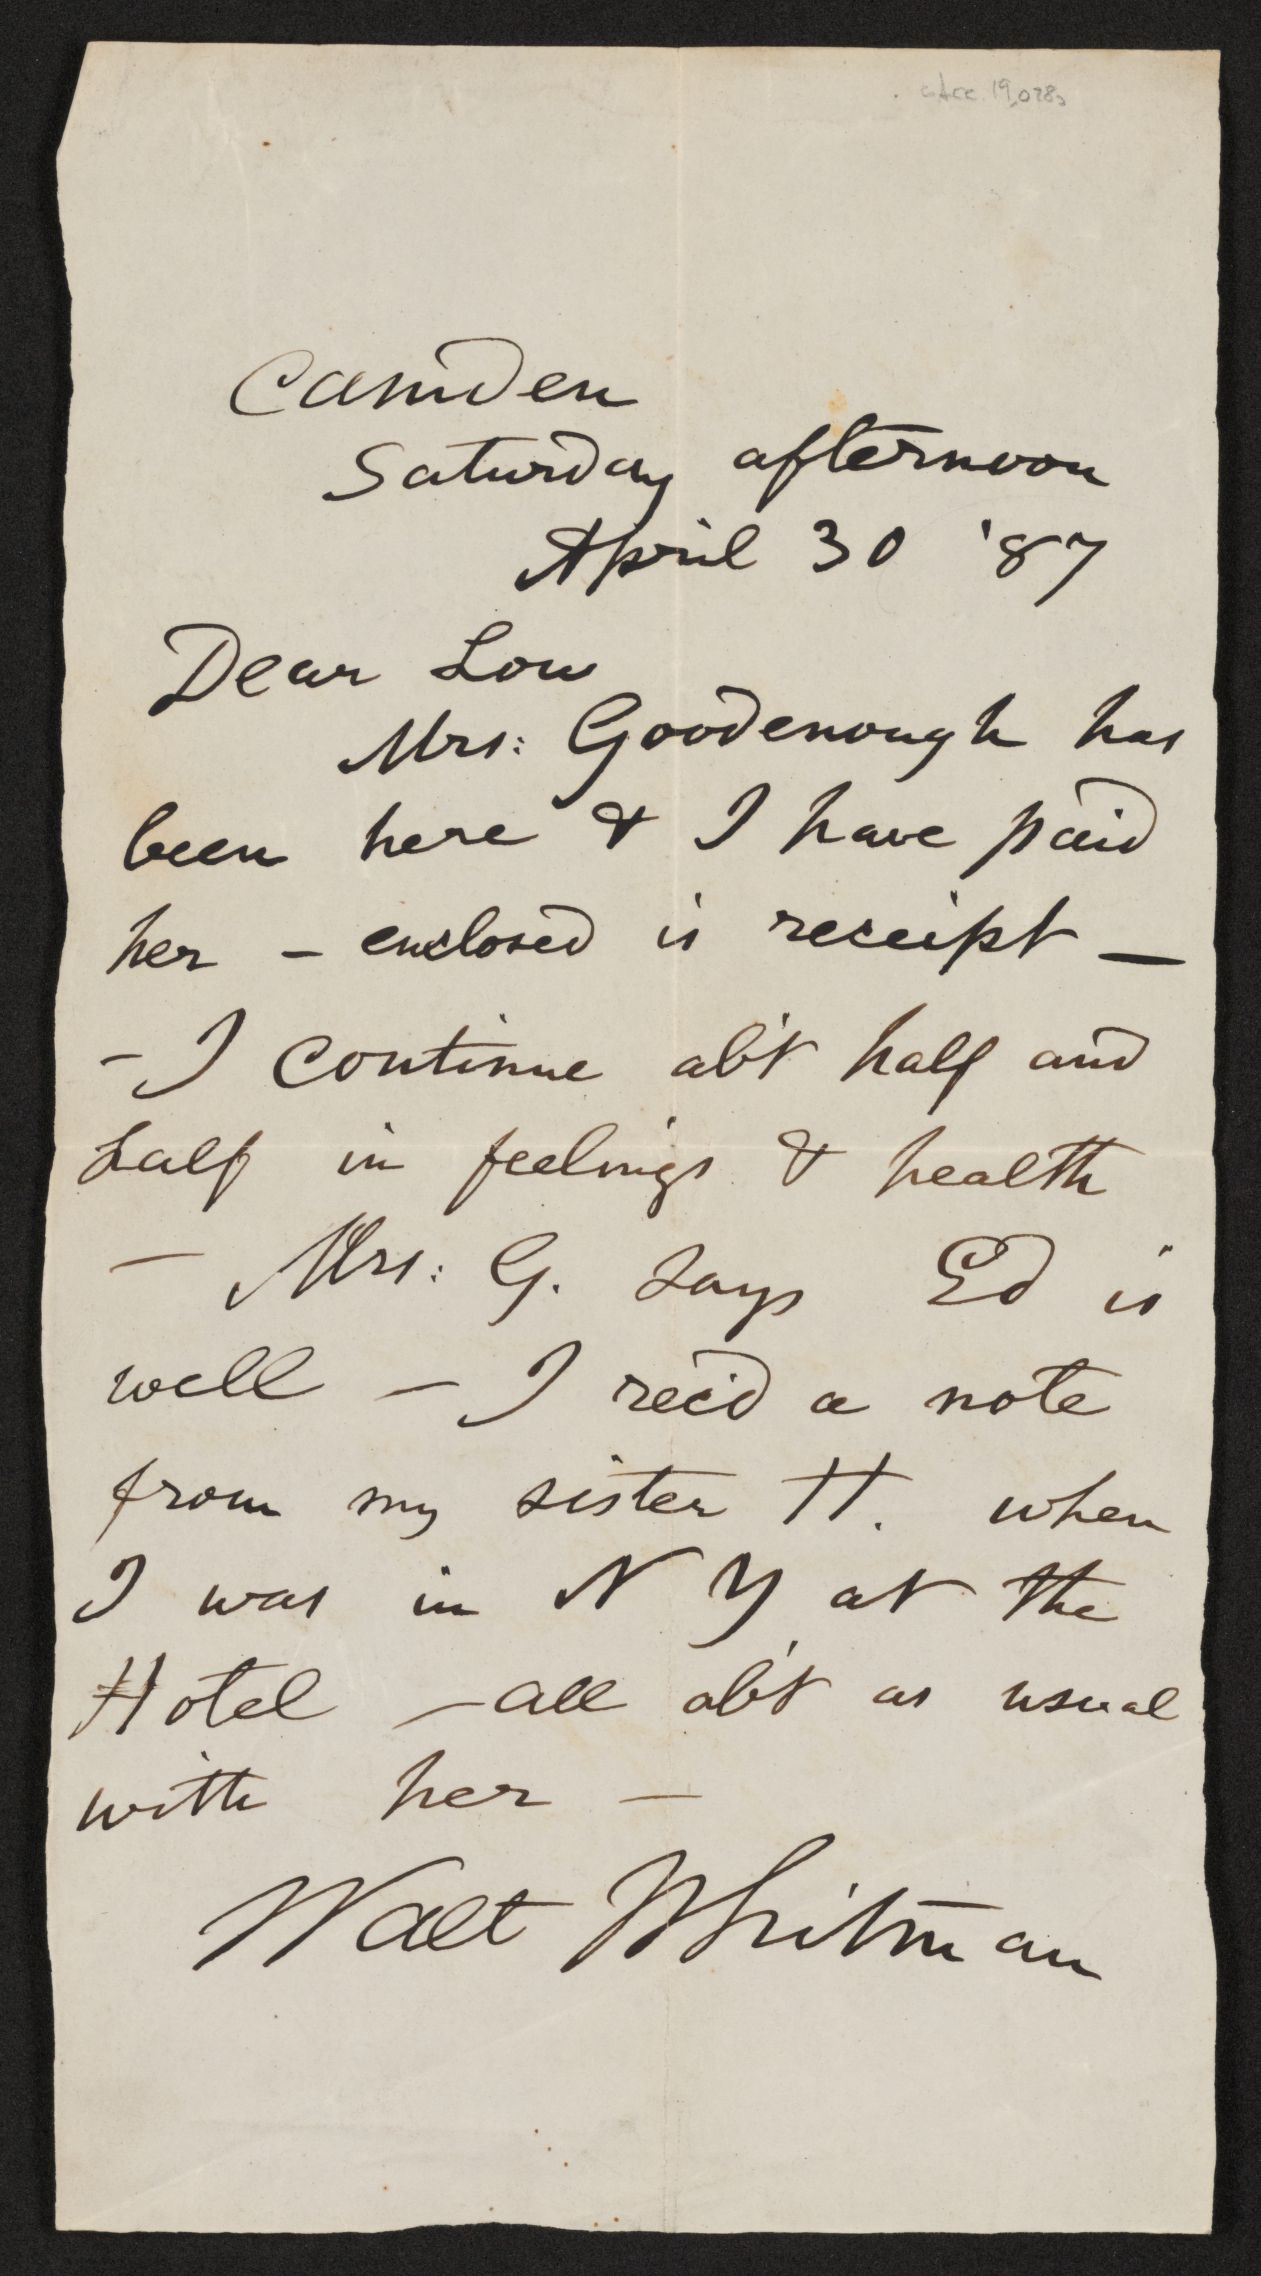 Acc. 19,028
Camden
Saturday afternoon
April 30 '87
Dear Lou
Mrs: Goodenough has
been here & I have paid
her – enclosed is receipt –
– I continue ab't half and
half in feelings & health
– Mrs: G. says Ed is
well – I rec'd a note
from my sister H. when
I was in N Y at the
Hotel – all ab't as usual
with her –
Walt Whitman